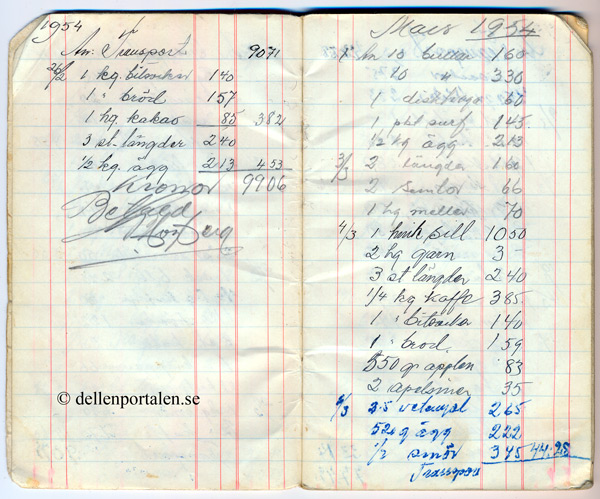 1954
An: Transport 9071
26/2 1 kg. bitsocker 140
1 " bröd 157
1 hg kakao 85 382
3 st längder 240
1/2 kg. ägg 213 453
Kronor 9906
Betalgd
© dellenportalen.se
Mars 1954
10 bullar 160
10 " 330
1 60
1 pkt surf 145
1/2 kg ägg 213
3/3 2 längder 160
2 semlor 66
1 hg 70
4/3 1 sill 1050
2 hg garn 3-
3 st längder 240
1/4 kg kaffe 385
1 " bitsocker 140
1 " bröd. 159
550 gr äpplen 83
2 apelsiner 35
/3 2.5 vetemjöl 265
520 g ägg 222
1/2 smör 345 44:28
Transport